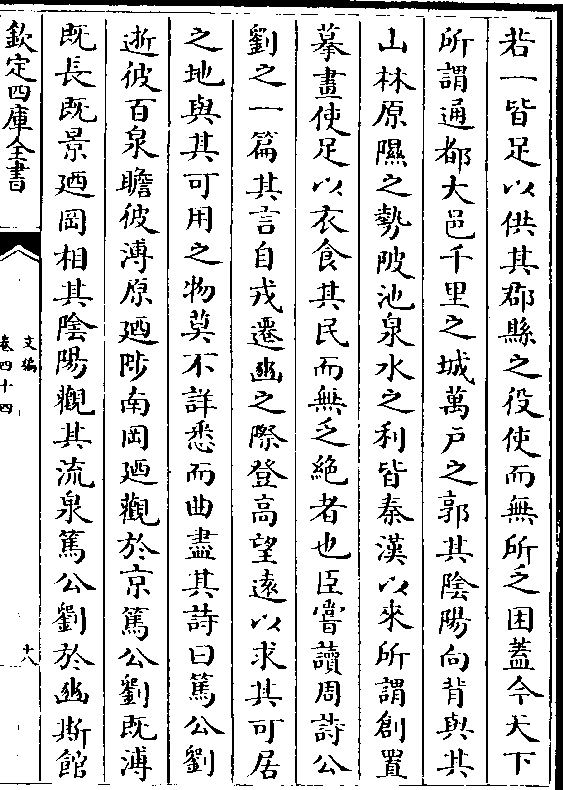 若一皆足以供其郡縣之役使而無所乏困蓋今天下
所謂通都大邑千里之城萬户之郭其陰陽向背與其
山林原隰之勢陂池泉水之利皆秦漢以來所謂創置
摹畫使足以衣食其民而無乏絶者也臣嘗讀周詩公
劉之一篇其言自戎遷豳之際登高望逺以求其可居
之地與其可用之物莫不詳悉而曲盡其詩曰篤公劉
逝彼百泉瞻彼溥原廼陟南岡廼觀於京篤公劉既溥
既長既景廼岡相其陰陽觀其流泉篤公劉於豳斯館
欽定四庫全書
文編
卷四十四
十八